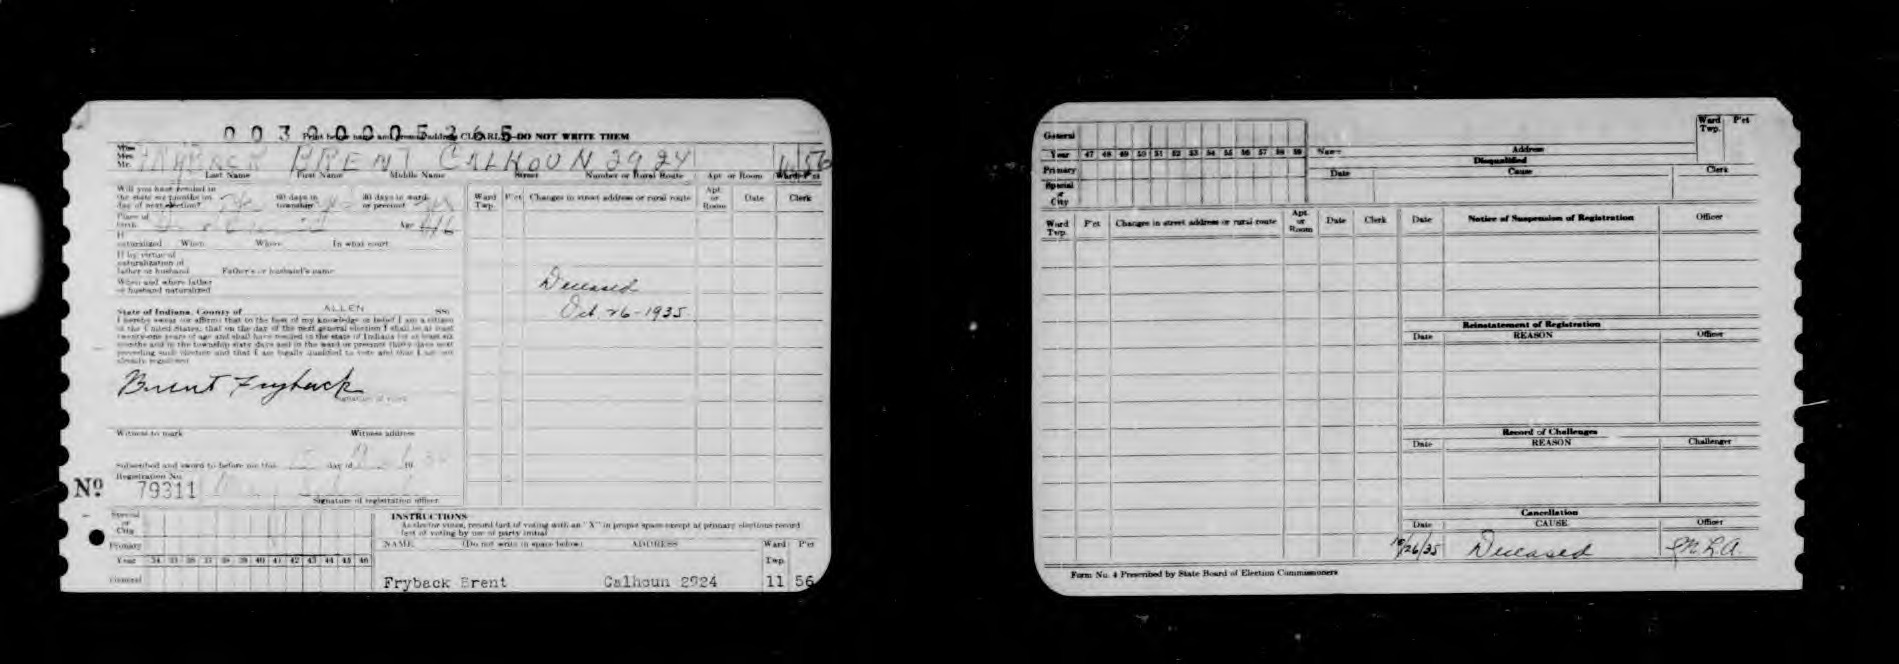 00300005365
Print below name and present address CLEARLY—DO NOT WRITE THEM
Miss
Mrs.
Mr.
FRYBACK BRENT CALHOUN 2924 11 56
Last Name First Name Middle Name Street Number or Rural Route Apt or Room Ward P'ct
Will you have resided in
the state six months on
day of next election? yes
60 days in
township yes
30 days in ward
or precinct yes
Place of
birth Age 46
If
naturalized When Where In what court
If by virtue of
naturalization of
father or husband Father's or husband's name
When and where father
or husband naturalized
State of Indiana, County of ALLEN SS:
I hereby swear or affirm that to the best of my knowledge or belief I am a citizen
of the United States, that on the day of the next general election I shall be at least
twenty-one years of age and shall have resided in the state of Indiana for at least six
months and in the township sixty days and in the ward or precinct thirty days next
preceding such election and that I am legally qualified to vote and that I am not
already registered
Brent Fryback
Signature of voter
Witness to mark Witness address
Subscribed and sworn to before me this day of 19
Registration No.
No 79311
Signature of registration officer
Ward
Twp.
P'ct
Changes in street address or rural route
Apt.
or
Room
Date
Clerk
Deceased
Oct. 26-1935
Special
or
City
Primary
Year 34 35 36 37 38 39 40 41 42 43 44 45 46
General
INSTRUCTIONS
As elector votes, record fact of voting with an "X" in proper space except at primary elections record
fact of voting by use of party initial
NAME (Do not write in space below) ADDRESS Ward P'ct
Twp.
Fryback Brent Calhoun 2924 11 56
General
Year 47 48 49 50 51 52 53 54 55 56 57 58 59
Primary
Special
or
City
Name Address
Ward
Twp.
P'ct
Disqualified
Date Cause Clerk
Ward
Twp.
P'ct
Changes in street address or rural route
Apt.
or
Room
Date
Clerk
Date Notice of Suspension of Registration Officer
Reinstatement of Registration
Date REASON Officer
Record of Challenges
Date REASON Challenger
Cancellation
Date CAUSE Officer
10/26/35 Deceased
Form No. 4 Prescribed by State Board of Election Commissioners